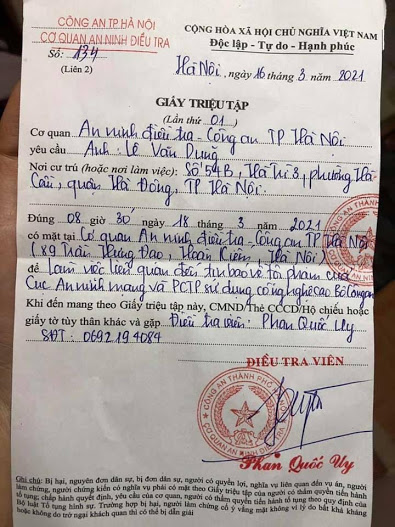 CÔNG AN TP.HÀ NỘI
CƠ QUAN AN NINH ĐIỀU TRA
Số: 134
(Liên 2)
CỘNG HÒA XÃ HỘI CHỦ NGHĨA VIỆT NAM
Độc lập - Tự do - Hạnh phúc
Hà Nội, ngày 16 tháng 3 năm 2021
GIẤY TRIỆU TẬP
(Lần thứ 01)
Cơ quan An ninh điều tra - Công an TP Hà Nội
yêu cầu Anh: Lê Văn Dũng
Nơi cư trú (hoặc nơi làm việc): Số 54B, Hà Trì 3, phường Hà
Cầu, quận Hà Đông, TP Hà Nội.
Đúng 08 giờ 30 ngày 18 tháng 3 năm 2021
có mặt tại Cơ quan An ninh điều tra - Công an TP Hà Nội
(89 Trần Hưng Đạo, Hoàn Kiếm, Hà Nội)
để Làm việc liên quan đến tin báo về tội phạm của
Cục An ninh mạng và PCTP sử dụng công nghệ cao Bộ Công an
Khi đến mang theo Giấy triệu tập này, CMND/Thẻ CCCD/Hộ chiếu hoặc
giấy tờ tùy thân khác và gặp Điều tra viên: Phan Quốc Uy
SĐT: 0692194084
ĐIỀU TRA VIÊN
CÔNG AN THÀNH PHỐ HÀ NỘI
CƠ QUAN AN NINH ĐIỀU TRA
Phan Quốc Uy
Ghi chú: Bị hại, nguyên đơn dân sự, bị đơn dân sự, người có quyền lợi, nghĩa vụ liên quan đến vụ án, người
làm chứng, người chứng kiến có nghĩa vụ phải có mặt theo Giấy triệu tập của người có thẩm quyền tiến hành
tố tụng; chấp hành quyết định, yêu cầu của cơ quan, người có thẩm quyền tiến hành tố tụng theo quy định của
Bộ luật Tố tụng hình sự. Trường hợp bị hại, người làm chứng cố ý vắng mặt không vì lý do bất khả kháng
hoặc không do trở ngại khách quan thì có thể bị dẫn giải